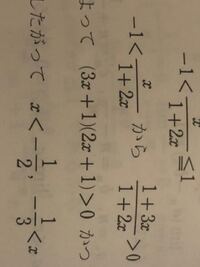 -1 < x/(1+2x) ≦ 1
-1 < x/(1+2x) から (1+3x)/(1+2x) > 0
よって (3x+1)(2x+1)>0 かつ
したがって x < -1/2, -1/3 < x